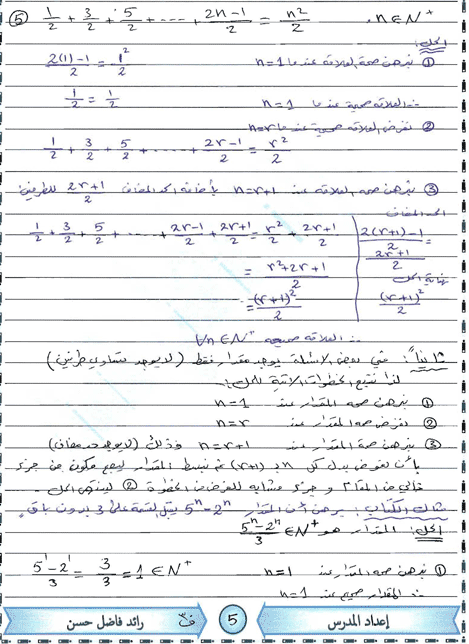 ⑤ 1/2 + 3/2 + 5/2 + ..... + (2n-1)/2 = n²/2 , n∈N⁺
الحل:
① نبرهن صحة العلاقة عندما n=1
(2(1)-1)/2 = 1²/2
1/2 = 1/2
∴ العلاقة صحيحة عندما n=1
② نفرض العلاقة صحيحة عندما n=r
1/2 + 3/2 + 5/2 + ..... + (2r-1)/2 = r²/2
③ نبرهن صحة العلاقة عند n=r+1 بإضافة الحد المضاف (2r+1)/2 للطرفين
الحد المضاف
1/2 + 3/2 + 5/2 + ..... + (2r-1)/2 + (2r+1)/2 = r²/2 + (2r+1)/2
(2(r+1)-1)/2 =
(2r+1)/2
= (r²+2r+1)/2
نهاية الحل
= (r+1)²/2
(r+1)²/2
∴ العلاقة صحيحة ∀n∈N⁺
ثانياً: في بعض الاسئلة يوجد مقدار فقط (لا يوجد متساوي طرفين)
لذا نتبع الخطوات الاتية للحل:
① نبرهن صحة المقدار عند n=1
② نفرض صحة المقدار عند n=r
③ نبرهن صحة المقدار عند n=r+1 وذلك (لا يوجد حد مضاف)
بأن نعوض بدل كل n بـ (r+1) ثم نبسط المقدار ليصبح مكون من جزء
خالي من المقام و جزء مشابه للفرض من الخطوة ② لينتهي الحل
مثال الكتاب: برهن أن المقدار 5ⁿ-2ⁿ يقبل القسمة على 3 بدون باقي
الحل: المقدار هو (5ⁿ-2ⁿ)/3 ∈N⁺
① نبرهن صحة المقدار عند n=1
(5¹-2¹)/3 = 3/3 = 1 ∈N⁺
∴ المقدار صحيح عند n=1
إعداد المدرس
5
رائد فاضل حسن